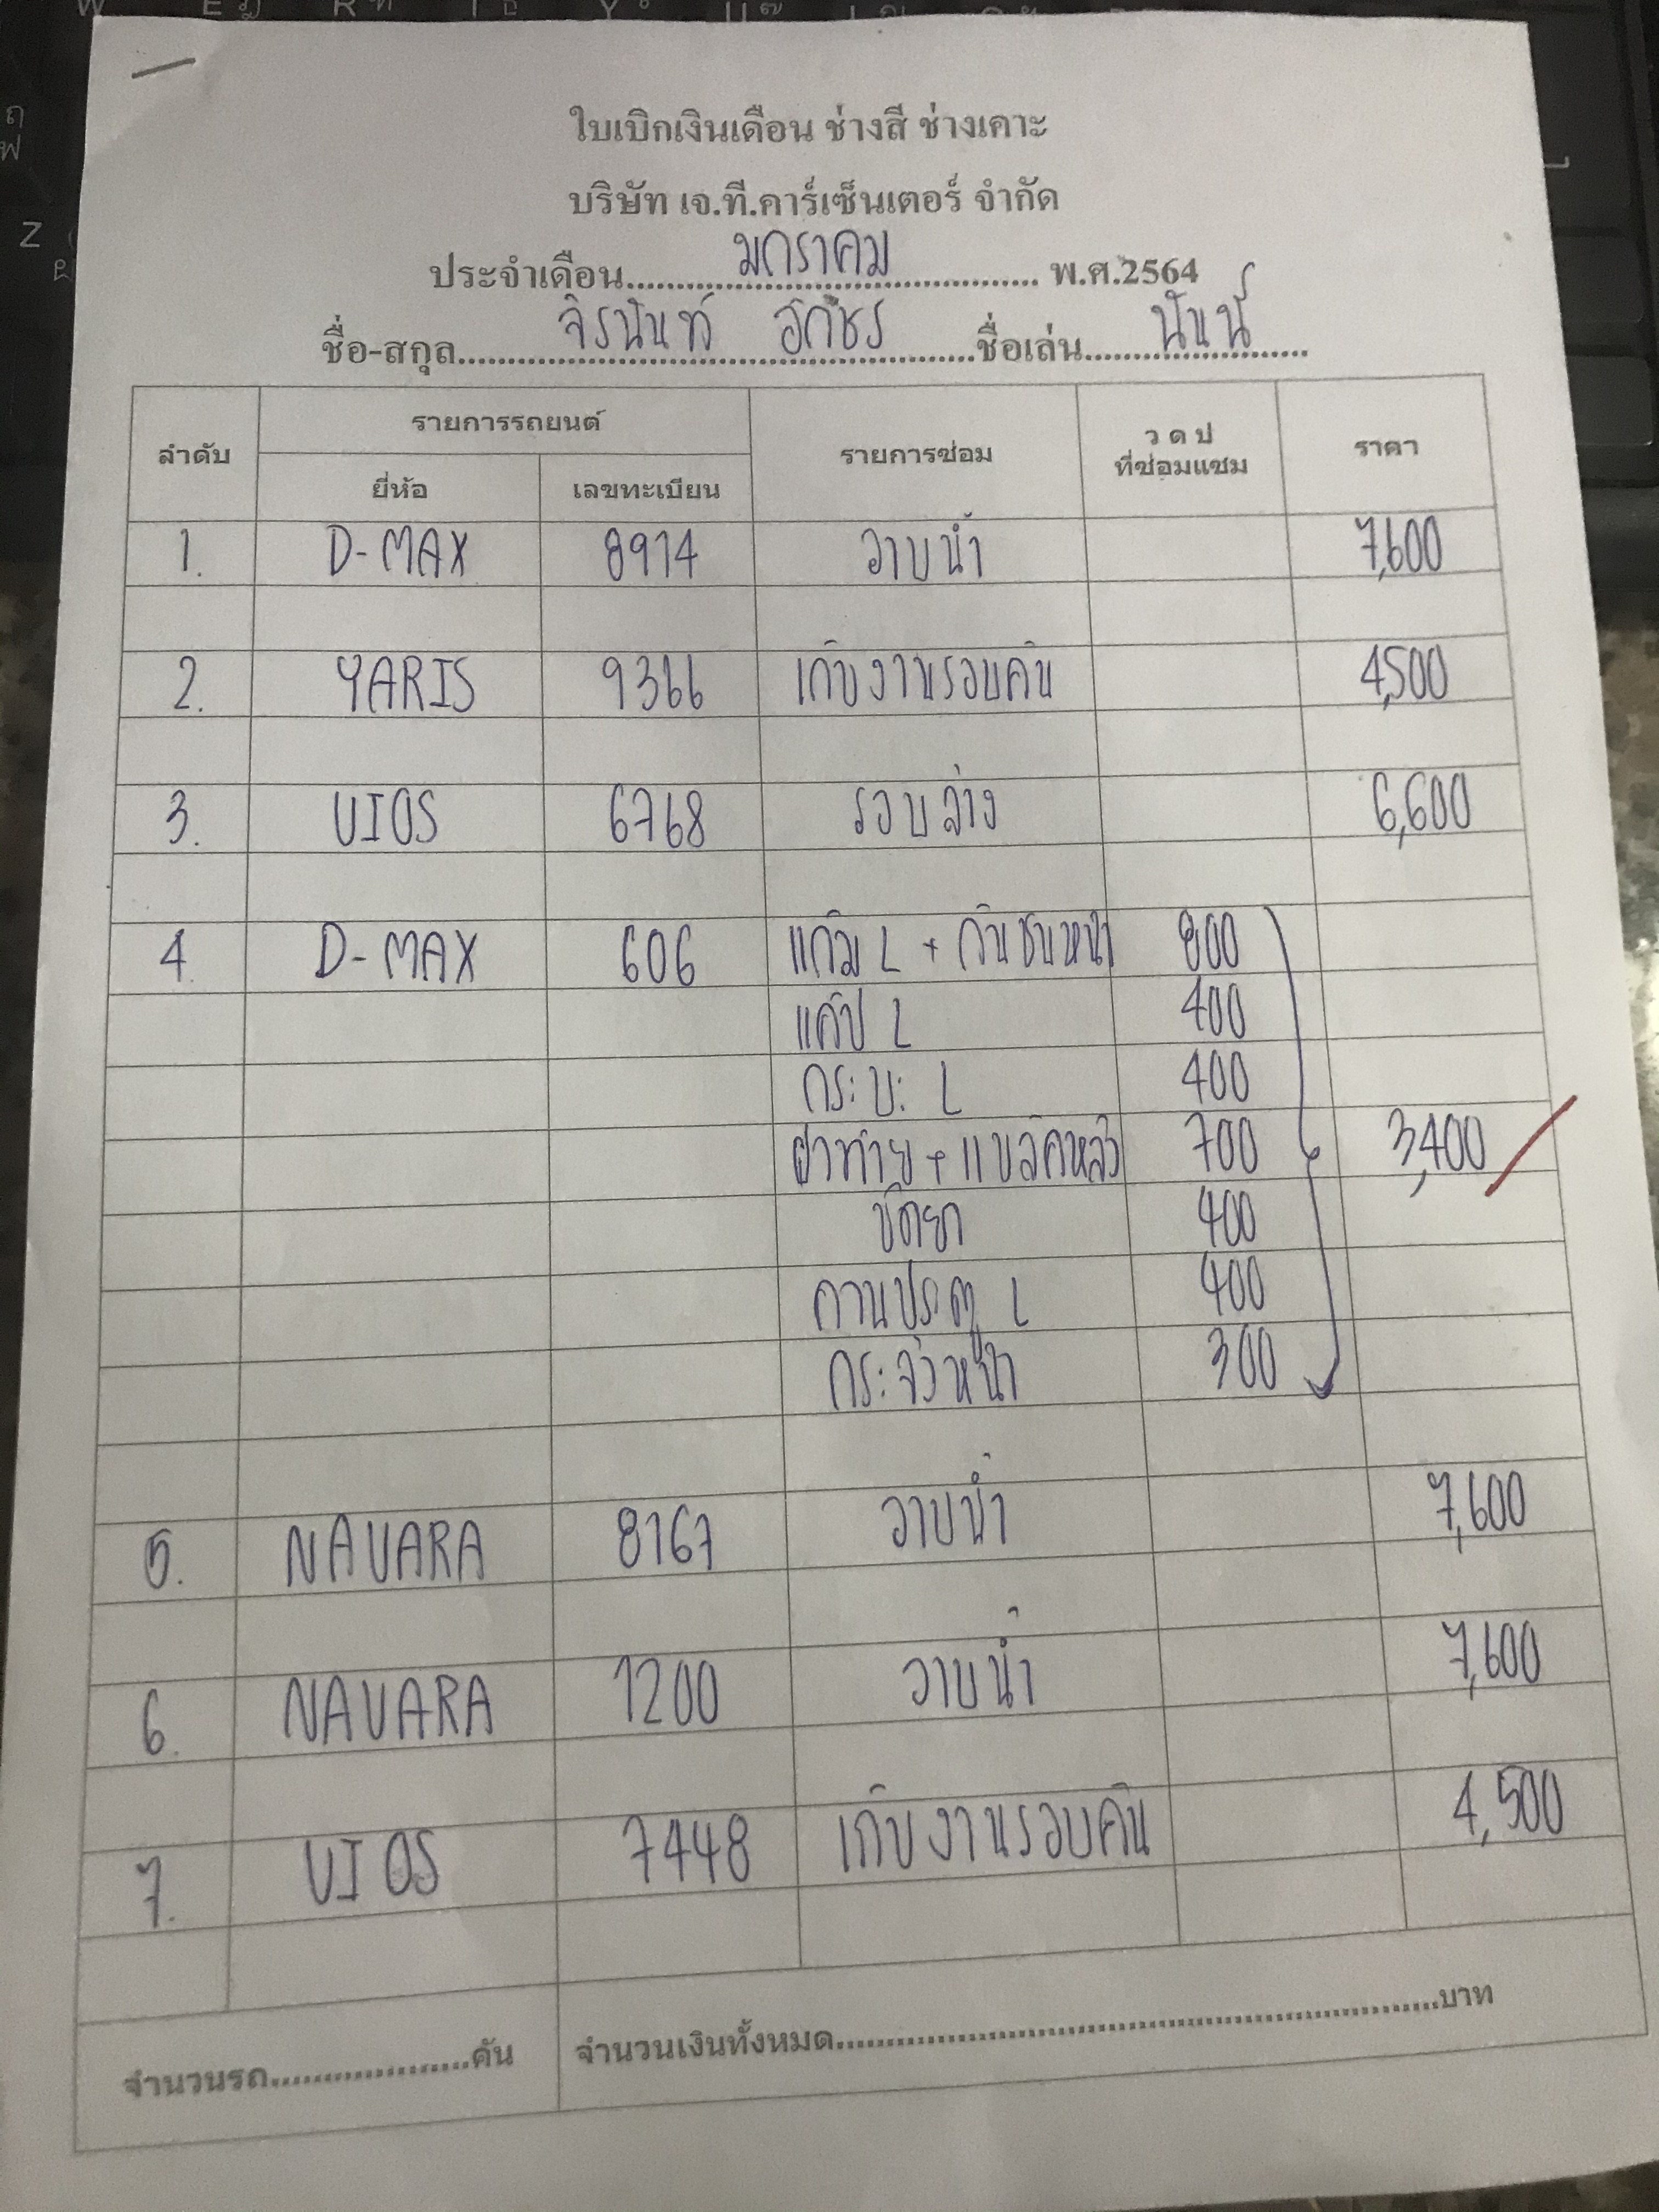 ใบเบิกเงินเดือน ช่างสี ช่างเคาะ
บริษัท เจ.ที.คาร์เซ็นเตอร์ จำกัด
ประจำเดือน มกราคม พ.ศ.2564
ชื่อ-สกุล จิรนันท์ ชื่อเล่น นันน์
ลำดับ รายการรถยนต์ รายการซ่อม ว ด ป ที่ซ่อมแซม ราคา
ยี่ห้อ เลขทะเบียน
1. D-MAX 8914 อาบน้ำ 7,600
2. YARIS 9366 เก็บงานรอบคัน 4,500
3. VIOS 6768 รอบล่าง 6,600
4. D-MAX 606 แก้ม L + กันชนหน้า 800
แค๊ป L 400
กระบะ L 400
ฝาท้าย + แบล็คหลัง 700 3,400
ขัดยา 400
คานประตู L 400
กระจังหน้า 300
5. NAVARA 8167 อาบน้ำ 7,600
6. NAVARA 1200 อาบน้ำ 7,600
7. VIOS 7448 เก็บงานรอบคัน 4,500
จำนวนรถ คัน จำนวนเงินทั้งหมด บาท